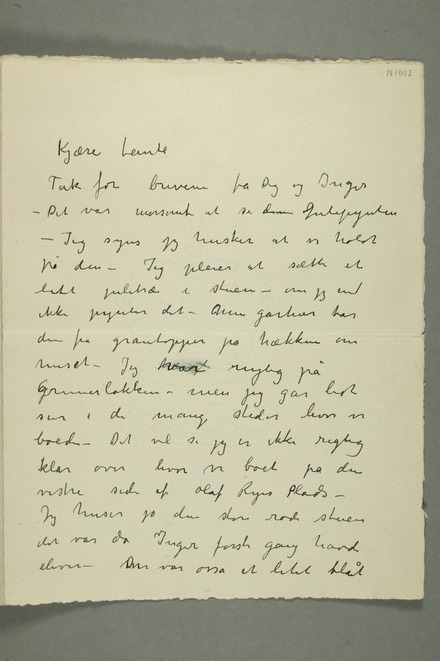 N 1002
Kjære Tante
Tak for brevene fra Dig og Inger
– Det var morsomt at se Julepynten
– Jeg synes jg husker at vi holdt
på den – Jeg pleier at sætte et
litet juletræ i stuen – om jg end
ikke pynter det –
den fra grantopper på hækken om
huset – Jg nylig på
Grünerløkken – men jeg gar
de mange steder hvor vi
boede – Det vil si jg er ikke rigtig
klar over hvor vi boet på den
vestre side af Olaf Ryes Plads –
Jg husker jo den store røde stuen
det var da Inger først gang havd
elever – Der var ossa et litet blåt